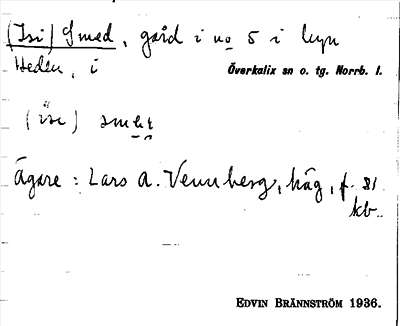 (Isi) Smed, gård i no 5 i byn
Heden, i
Överkalix sn o. tg. Norrb. l.
Ägare : Lars A. Vennberg, häg, f. 81
kb..
EDVIN BRÄNNSTRÖM 1936.